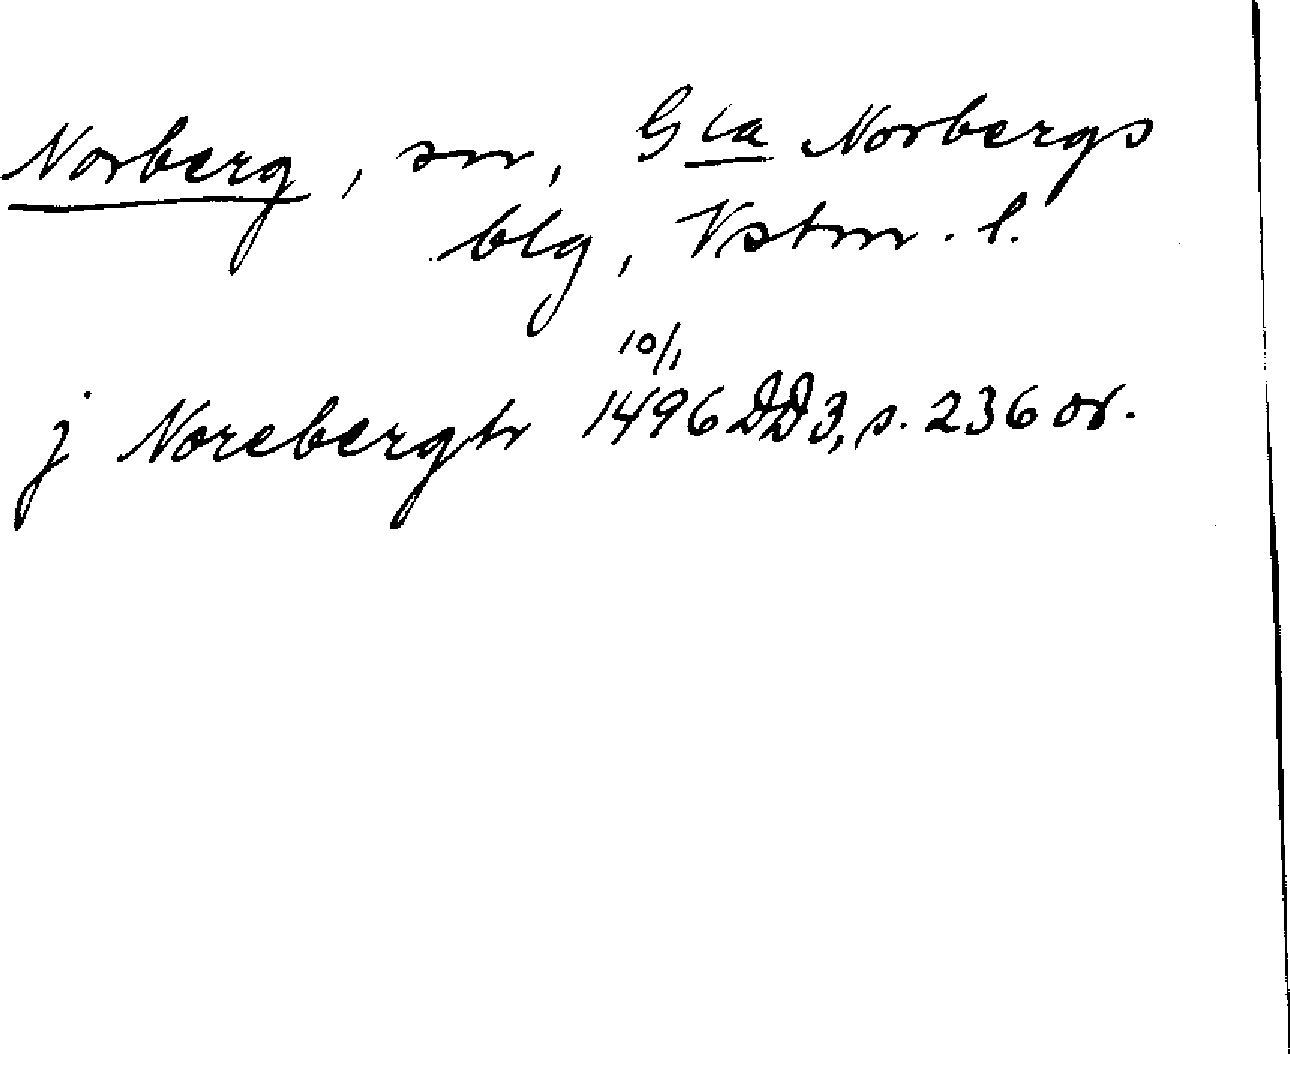 Norberg, sn, Gla Norbergs
blg, Vstm. l.
j Norebergh 10/1 1496 DD3, s. 236 or.